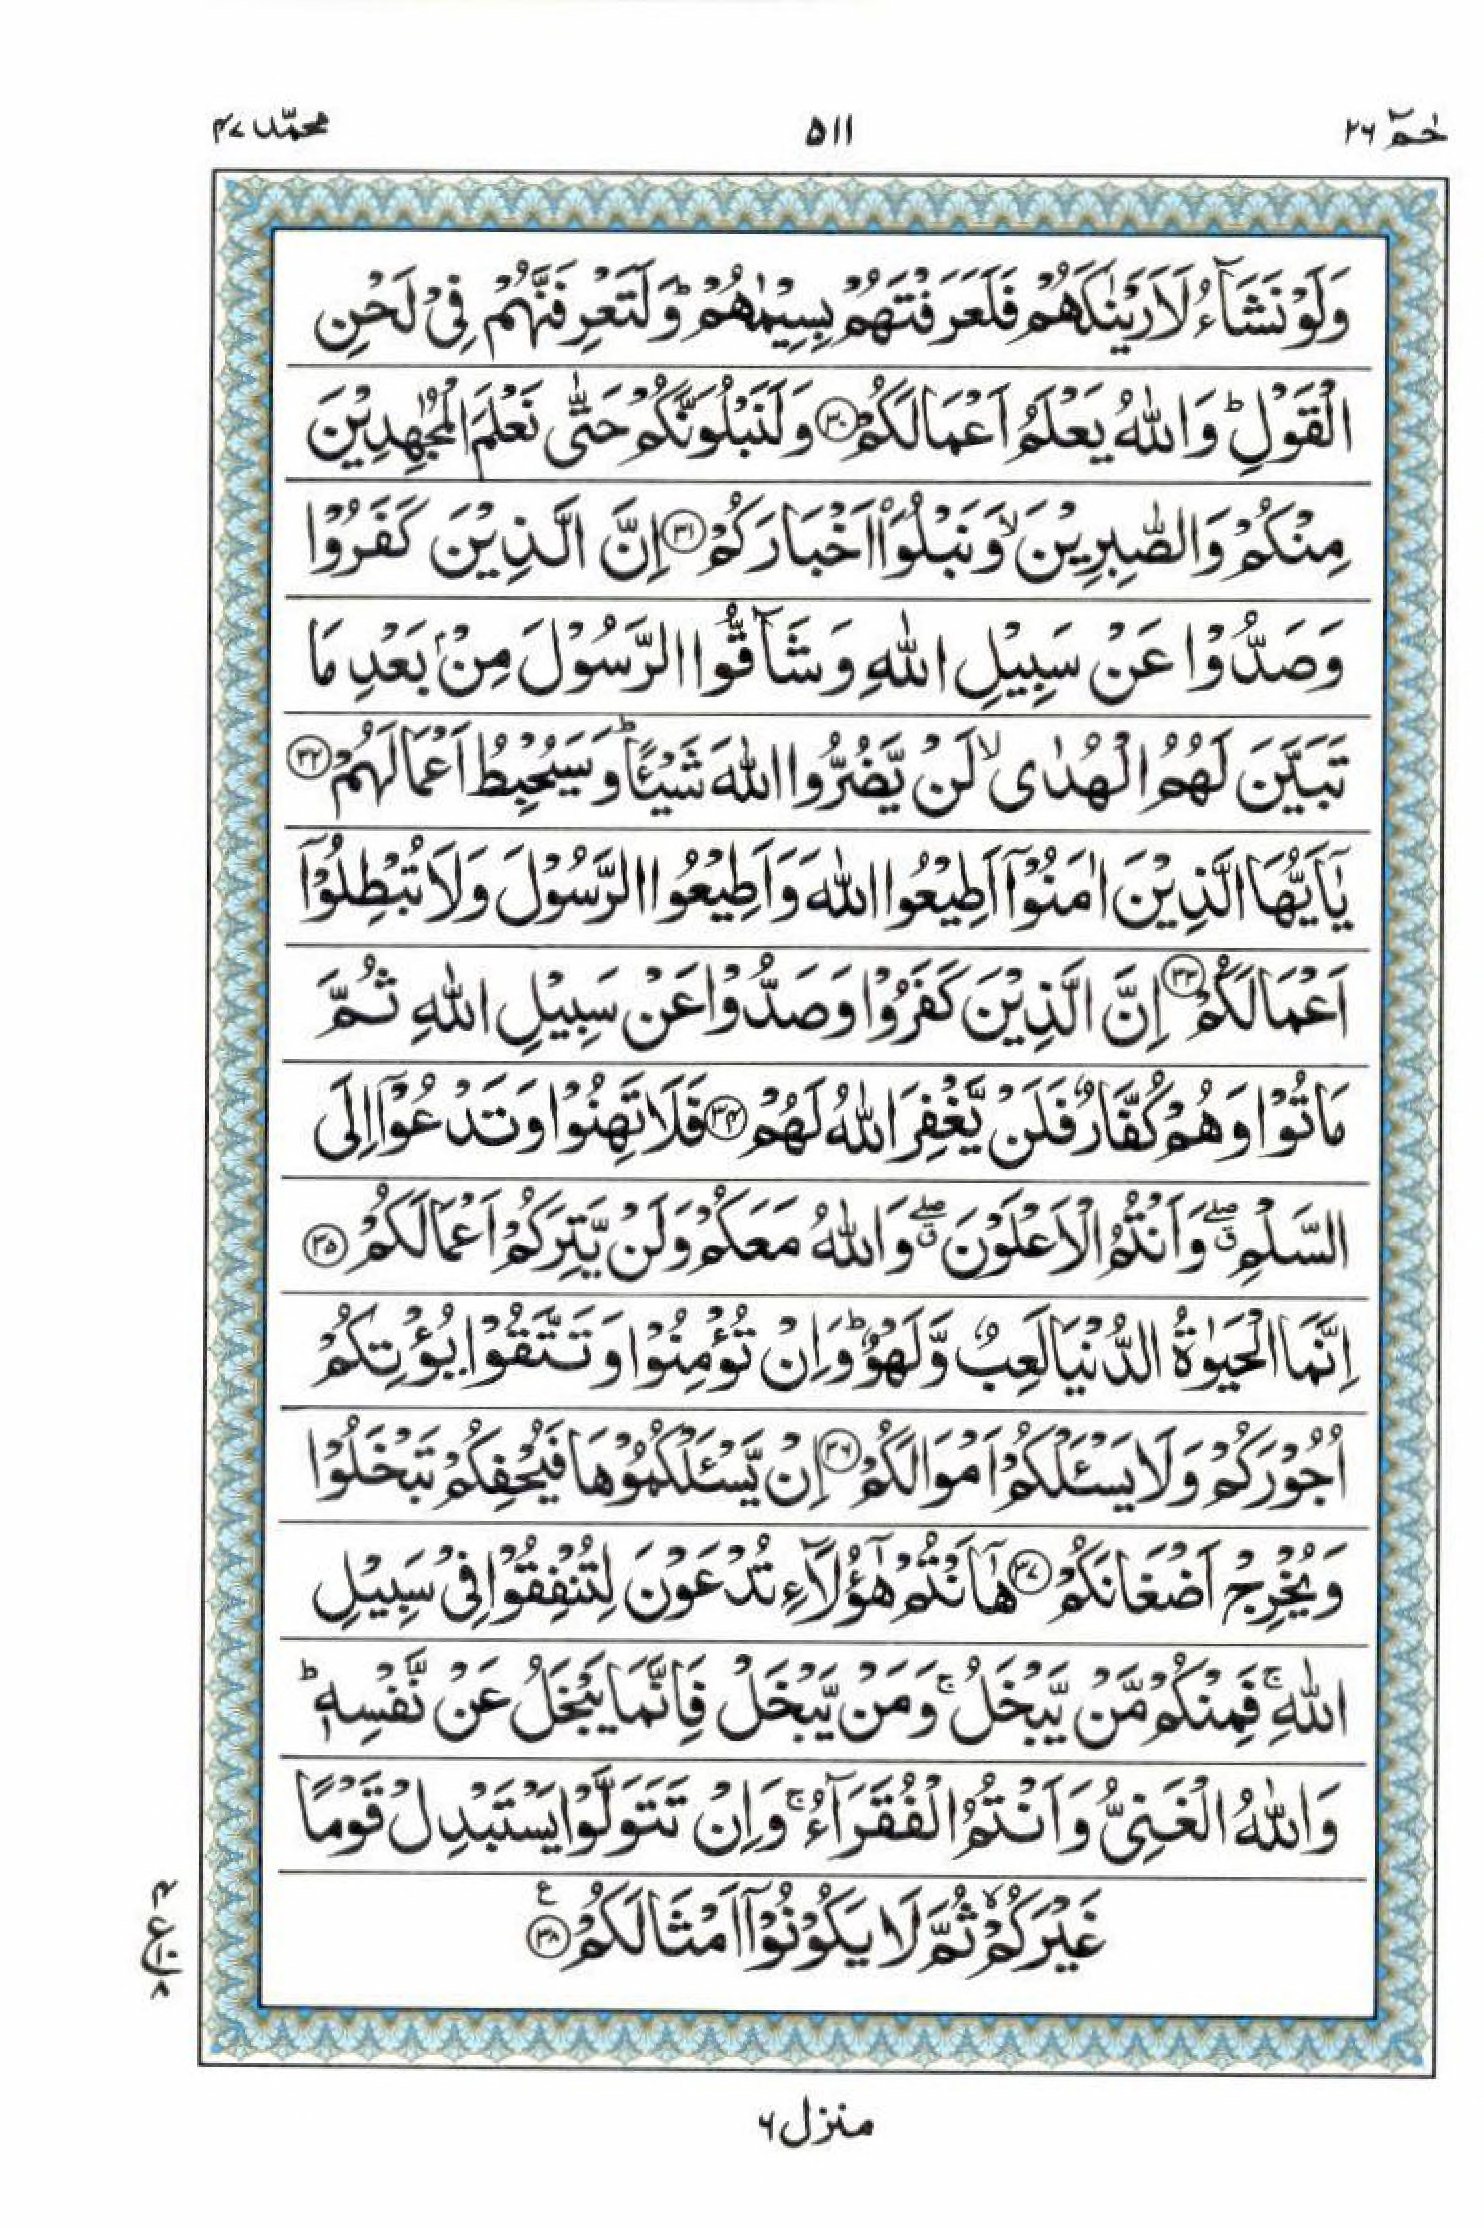 حٰمٓ ۲۶
۵۱۱
محمّد ۴۷
وَلَوْ نَشَآءُ لَاَرَیْنٰكَهُمْ فَلَعَرَفْتَهُمْ بِسِیْمٰهُمْ ؕ وَلَتَعْرِفَنَّهُمْ فِیْ لَحْنِ
الْقَوْلِ ؕ وَاللّٰهُ یَعْلَمُ اَعْمَالَكُمْ ۳۰ وَلَنَبْلُوَنَّكُمْ حَتّٰی نَعْلَمَ الْمُجٰهِدِیْنَ
مِنْكُمْ وَالصّٰبِرِیْنَ ۙ وَنَبْلُوَا۟ اَخْبَارَكُمْ ۳۱ اِنَّ الَّذِیْنَ كَفَرُوْا
وَصَدُّوْا عَنْ سَبِیْلِ اللّٰهِ وَشَآقُّوا الرَّسُوْلَ مِنْۢ بَعْدِ مَا
تَبَیَّنَ لَهُمُ الْهُدٰی ۙ لَنْ یَّضُرُّوا اللّٰهَ شَیْـًٔا ؕ وَسَیُحْبِطُ اَعْمَالَهُمْ ۳۲
یٰۤاَیُّهَا الَّذِیْنَ اٰمَنُوْۤا اَطِیْعُوا اللّٰهَ وَاَطِیْعُوا الرَّسُوْلَ وَلَا تُبْطِلُوْۤا
اَعْمَالَكُمْ ۳۳ اِنَّ الَّذِیْنَ كَفَرُوْا وَصَدُّوْا عَنْ سَبِیْلِ اللّٰهِ ثُمَّ
مَاتُوْا وَهُمْ كُفَّارٌ فَلَنْ یَّغْفِرَ اللّٰهُ لَهُمْ ۳۴ فَلَا تَهِنُوْا وَتَدْعُوْۤا اِلَی
السَّلْمِ ۖۗ وَاَنْتُمُ الْاَعْلَوْنَ ۖۗ وَاللّٰهُ مَعَكُمْ وَلَنْ یَّتِرَكُمْ اَعْمَالَكُمْ ۳۵
اِنَّمَا الْحَیٰوةُ الدُّنْیَا لَعِبٌ وَّلَهْوٌ ؕ وَاِنْ تُؤْمِنُوْا وَتَتَّقُوْا یُؤْتِكُمْ
اُجُوْرَكُمْ وَلَا یَسْـَٔلْكُمْ اَمْوَالَكُمْ ۳۶ اِنْ یَّسْـَٔلْكُمُوْهَا فَیُحْفِكُمْ تَبْخَلُوْا
وَیُخْرِجْ اَضْغَانَكُمْ ۳۷ هٰۤاَنْتُمْ هٰۤؤُلَآءِ تُدْعَوْنَ لِتُنْفِقُوْا فِیْ سَبِیْلِ
اللّٰهِ ۚ فَمِنْكُمْ مَّنْ یَّبْخَلُ ۚ وَمَنْ یَّبْخَلْ فَاِنَّمَا یَبْخَلُ عَنْ نَّفْسِهٖ ؕ
وَاللّٰهُ الْغَنِیُّ وَاَنْتُمُ الْفُقَرَآءُ ۚ وَاِنْ تَتَوَلَّوْا یَسْتَبْدِلْ قَوْمًا
غَیْرَكُمْ ۙ ثُمَّ لَا یَكُوْنُوْۤا اَمْثَالَكُمْ ع ۳۸
۴
ع ۱۰
۸
منزل ۶